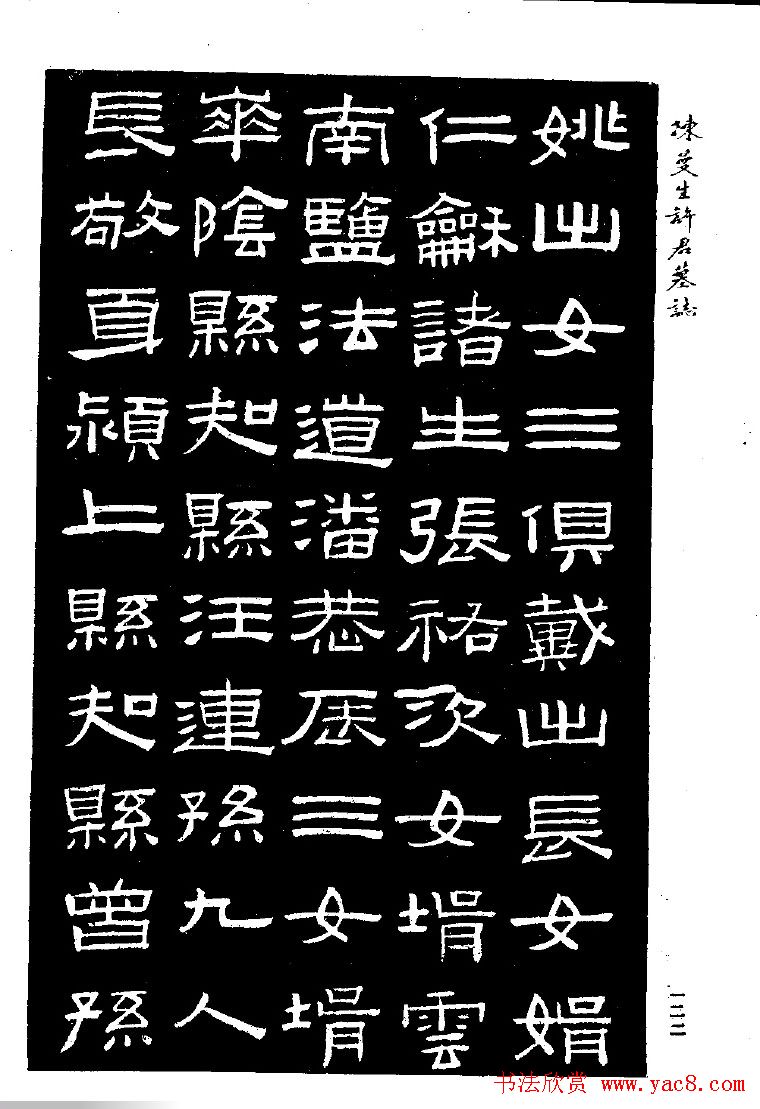 陳曼生許君墓誌
姚出女三俱戴出長女婿
仁龢諸生張祐次女壻雲
南鹽法道潘恭辰三女壻
華陰縣知縣汪連孫九人
長敬頁潁上縣知縣曾孫
一二二
书法欣赏 www.yac8.com